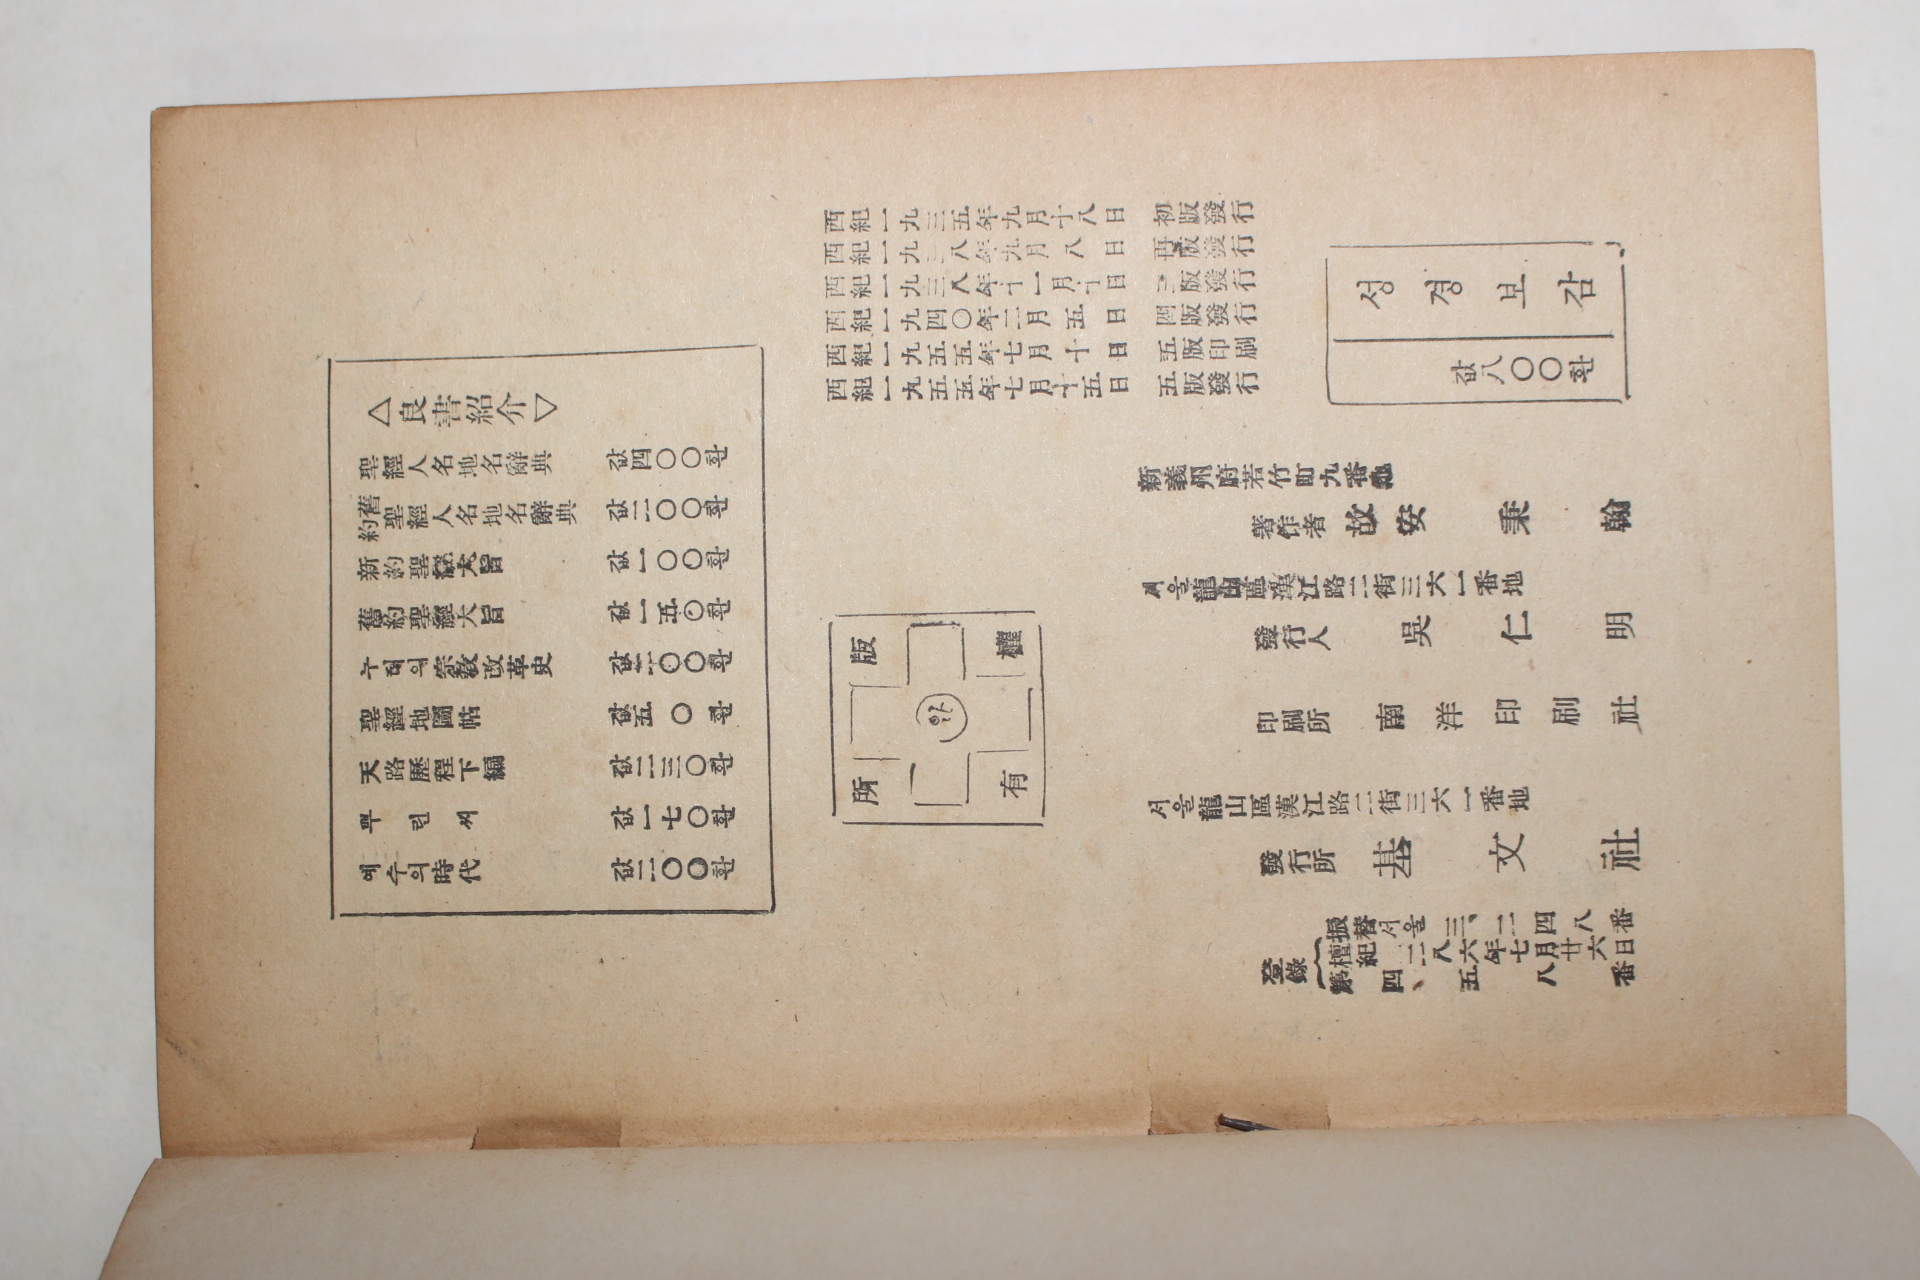 △良書紹介▽
聖經人名地名辭典 값四〇〇환
舊約聖經人名地名辭典 값二〇〇환
新約聖經大旨 값一〇〇환
舊約聖經大旨 값一五〇환
누터의宗敎改革史 값二〇〇환
聖經地圖帖 값五〇환
天路歷程下編 값二三〇환
뿌린씨 값一七〇환
예수의時代 값二〇〇환
西紀一九三五年九月十八日 初版發行
西紀一九三八年九月八日 再版發行
西紀一九三八年十一月十日 三版發行
西紀一九四〇年二月五日 四版發行
西紀一九五五年七月十日 五版印刷
西紀一九五五年七月十五日 五版發行
版權
所有
성경보감
값八〇〇환
新義州府若竹町九番地
著作者 故安秉翰
서울龍山區漢江路二街三六一番地
發行人 吳仁明
印刷所 南洋印刷社
서울龍山區漢江路二街三六一番地
發行所 基文社
振替서울三、二四八番
登錄
檀紀四二八六年七月廿六日
第四、五八番